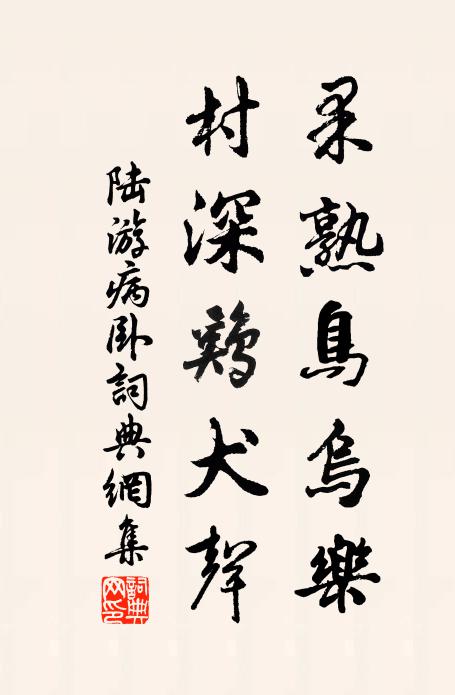 果熟鳥烏樂
村深鷄犬聲
陸游病卧詞典網集
詞典网印